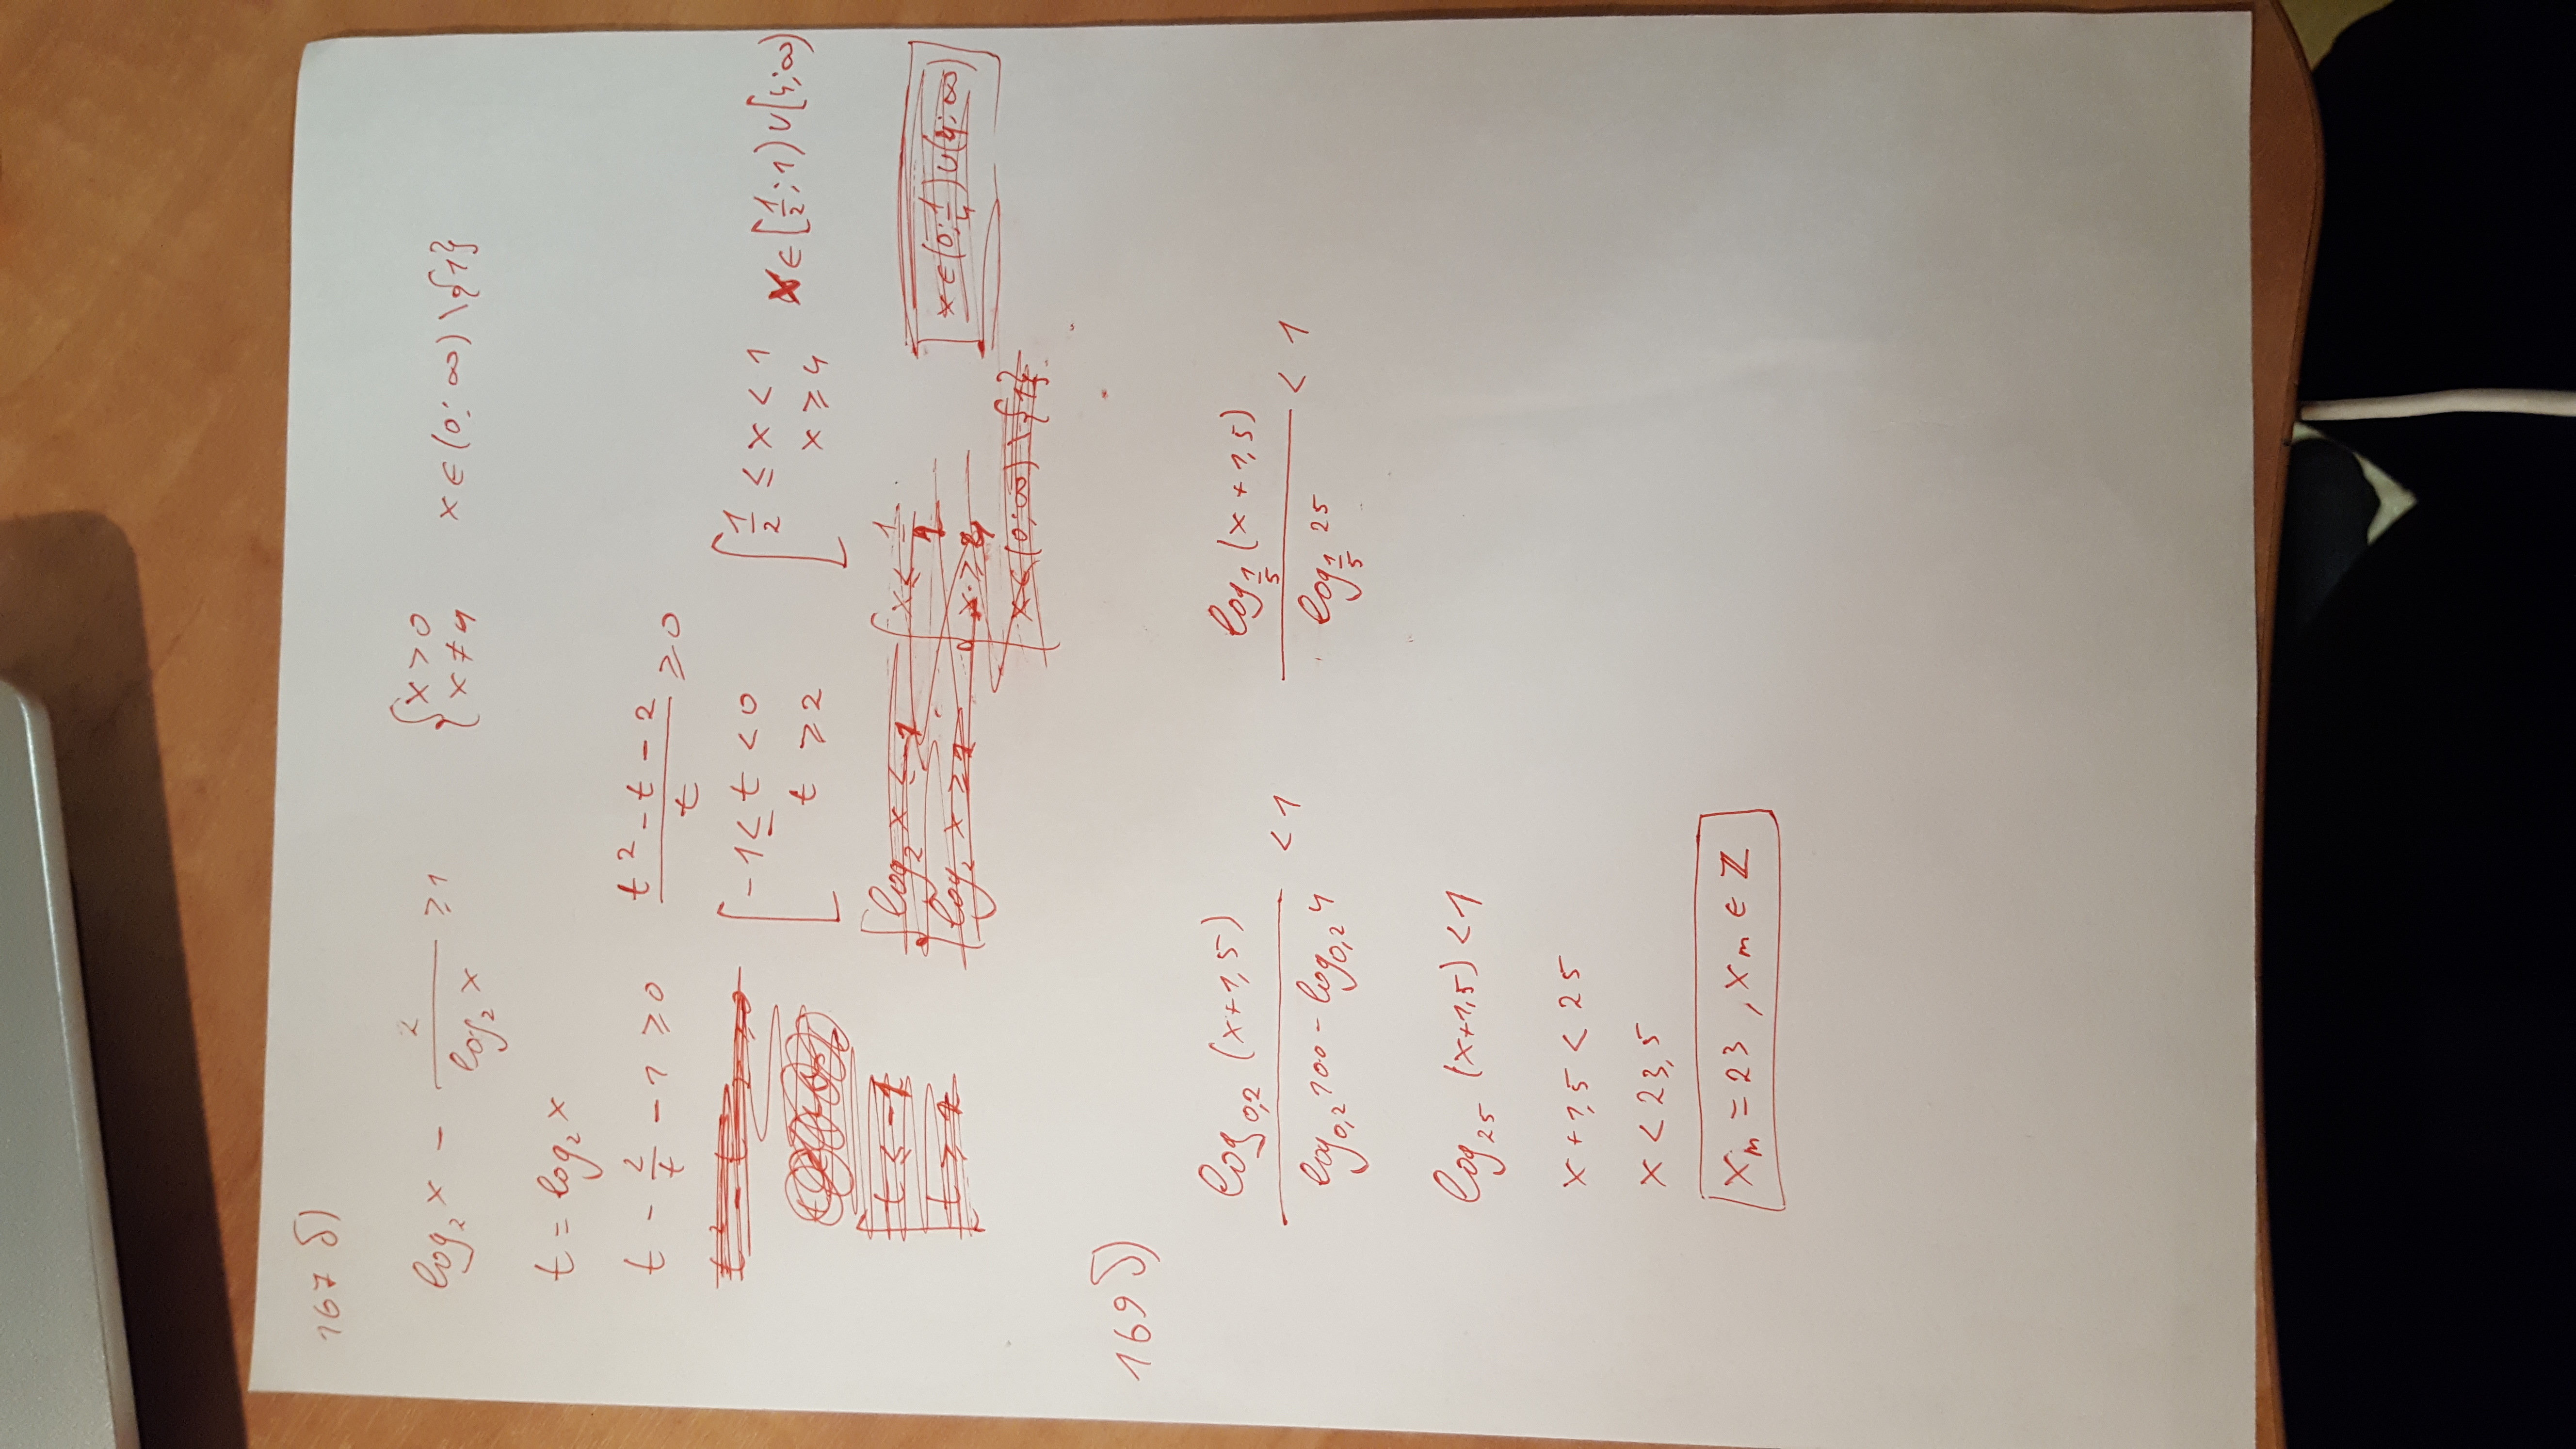 167 б)
log₂x - 2/log₂x ≥ 1 {x > 0 x ∈ (0; ∞) \ {1}
x ≠ 1
t = log₂x
t - 2/t - 1 ≥ 0 (t² - t - 2)/t ≥ 0
[-1 ≤ t < 0 [1/2 ≤ x < 1 x ∈ [1/2; 1) ∪ [4; ∞)
t ≥ 2 x ≥ 4
t ≤ -1
x ∈ (0; 1/4) ∪ (4; ∞)
x ∈ (0; ∞) \ {1}
169 б)
log₀,₂(x+1,5)/(log₀,₂100 - log₀,₂4) < 1 log_{1/5}(x+1,5)/log_{1/5}25 < 1
log₂₅(x+1,5) < 1
x + 1,5 < 25
x < 23,5
xₘ = 23, xₘ ∈ ℤ